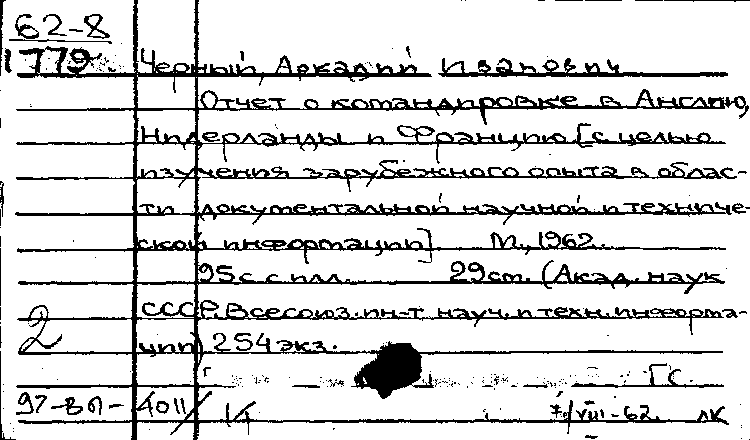 62-8
1779
Черный, Аркадий Иванович
Отчет о командировке в Англию,
Нидерланды и Францию [с целью
изучения зарубежного опыта в облас-
ти документальной научной и техниче-
ской информации]. М., 1962.
95 с. с илл. 29 см. (Акад. наук
СССР. Всесоюз. ин-т науч. и техн. информа-
ции) 254 экз.
2
ГС.
97-вл- 4011/ 1/1 7/VIII-62. ЛК